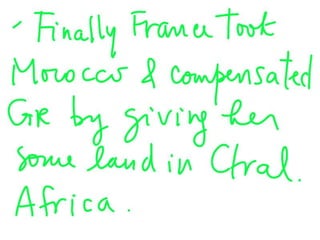 - Finally France took
Morocco & compensated
GR by giving her
some land in Ctral.
Africa.